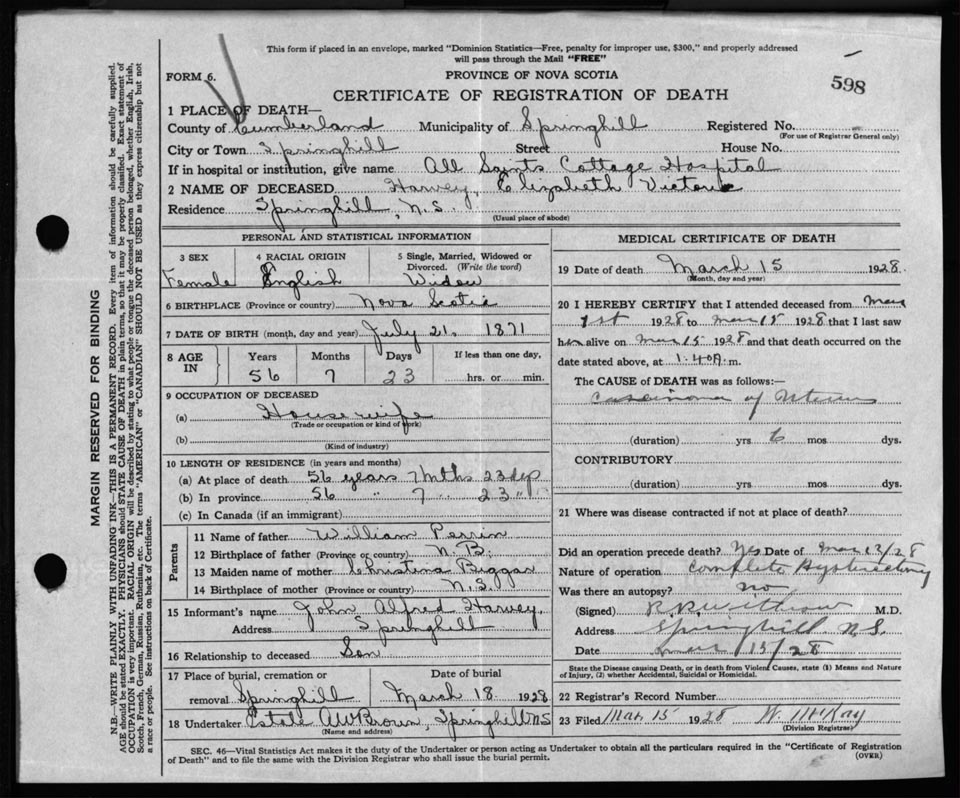 This form if placed in an envelope, marked "Dominion Statistics—Free, penalty for improper use, $300," and properly addressed
will pass through the Mail "FREE"
FORM 6.
PROVINCE OF NOVA SCOTIA
598
CERTIFICATE OF REGISTRATION OF DEATH
1 PLACE OF DEATH—
County of Cumberland Municipality of Springhill Registered No.
(For use of Registrar General only)
City or Town Springhill Street House No.
If in hospital or institution, give name All Saints Cottage Hospital
2 NAME OF DECEASED Harvey, Elizabeth Victoria
Residence Springhill, N.S.
(Usual place of abode)
PERSONAL AND STATISTICAL INFORMATION
3 SEX 4 RACIAL ORIGIN 5 Single, Married, Widowed or
Divorced. (Write the word)
Female English Widow
6 BIRTHPLACE (Province or country) Nova Scotia
7 DATE OF BIRTH (month, day and year) July 21, 1871
8 AGE IN Years Months Days If less than one day,
56 7 23 hrs. or min.
9 OCCUPATION OF DECEASED
(a) Housewife
(Trade or occupation or kind of work)
(b)
(Kind of industry)
10 LENGTH OF RESIDENCE (in years and months)
(a) At place of death 56 years 7 mths 23 dys
(b) In province 56 " 7 " 23 "
(c) In Canada (if an immigrant)
Parents
11 Name of father William Perrin
12 Birthplace of father (Province or country) N.B.
13 Maiden name of mother Christina Biggar
14 Birthplace of mother (Province or country) N.S.
15 Informant's name John Alfred Harvey,
Address Springhill
16 Relationship to deceased Son
17 Place of burial, cremation or Date of burial
removal Springhill March 18 1928
18 Undertaker Estate A W Brown, Springhill NS
(Name and address)
MEDICAL CERTIFICATE OF DEATH
19 Date of death March 15 1928.
(Month, day and year)
20 I HEREBY CERTIFY that I attended deceased from Mar
1st 1928 to Mar 15 1928 that I last saw
her alive on Mar 15 1928 and that death occurred on the
date stated above, at 1.40 A. m.
The CAUSE of DEATH was as follows:—
Carcinoma of Uterus
(duration) yrs 6 mos dys.
CONTRIBUTORY
(duration) yrs. mos. dys.
21 Where was disease contracted if not at place of death?
Did an operation precede death? Yes Date of Mar 13/28
Nature of operation Complete Hysterectomy
Was there an autopsy? no
(Signed) M.D.
Address Springhill N.S.
Date Mar 15/28
State the Disease causing Death, or in death from Violent Causes, state (1) Means and Nature
of Injury, (2) whether Accidental, Suicidal or Homicidal.
22 Registrar's Record Number
23 Filed Mar. 15 1928 W. McKay
(Division Registrar)
SEC. 46—Vital Statistics Act makes it the duty of the Undertaker or person acting as Undertaker to obtain all the particulars required in the "Certificate of Registration
of Death" and to file the same with the Division Registrar who shall issue the burial permit.
(OVER)
MARGIN RESERVED FOR BINDING
N.B.—WRITE PLAINLY WITH UNFADING INK—THIS IS A PERMANENT RECORD. Every item of information should be carefully supplied.
AGE should be stated EXACTLY. PHYSICIANS should STATE CAUSE OF DEATH in plain terms, so that it may be properly classified. Exact statement of
OCCUPATION is very important. RACIAL ORIGIN will be described by stating to what people or tongue the deceased person belonged, whether English, Irish,
Scotch, French, German, Russian, Ruthenian, etc. The terms "AMERICAN" or "CANADIAN" SHOULD NOT BE USED as they express citizenship but not
a race or people. See instructions on back of Certificate.